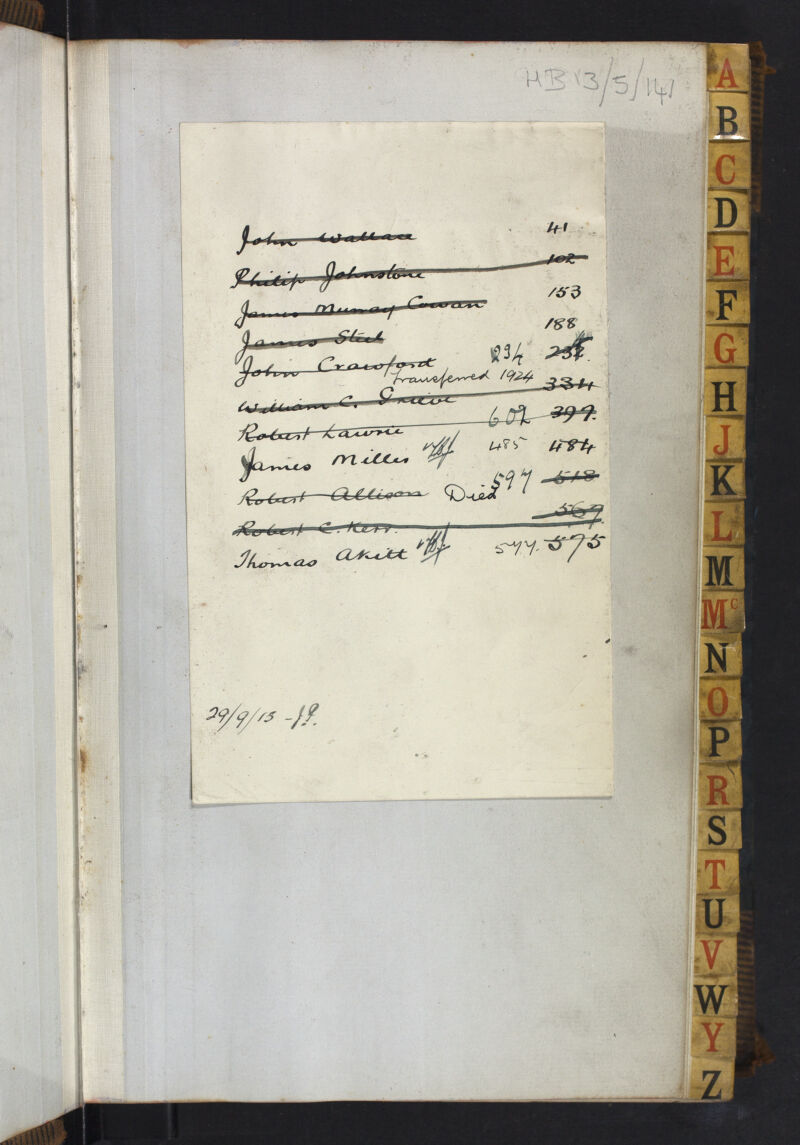 HB 13/5/141
John Wallace 41
Philip Johnstone 102
James Murray Cowan 153
James Steel 188
John Crawford 234 232
transferred 1924
William C. Grieve 334
Robert Lawrie 602 399
James Miller 485 484
Robert Allison Died 597 518
Robert C. Kerr 567
Thomas Akitt 577. 575
29/9/15 -
A
B
C
D
E
F
G
H
J
K
L
M
Mc
N
O
P
R
S
T
U
V
W
Y
Z